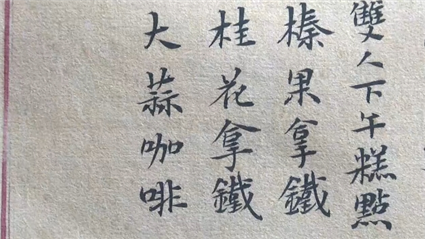 雙人下午糕點
榛果拿鐵
桂花拿鐵
大蒜咖啡